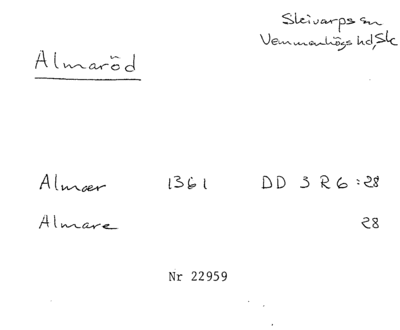 Skivarps sn
Vemmenhögs hd, Sk
Almaröd
Almær 1361 DD 3 R 6:28
Almare 28
Nr 22959